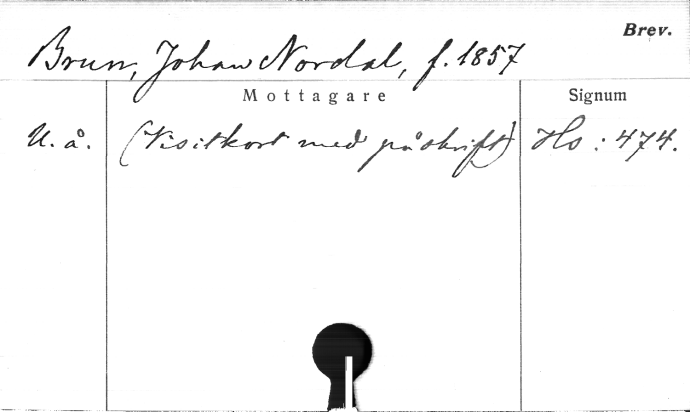 Brev.
Brun, Johan Nordal, f. 1857
Mottagare Signum
U. å. (Visitkort med påskrift) Hs: 474.